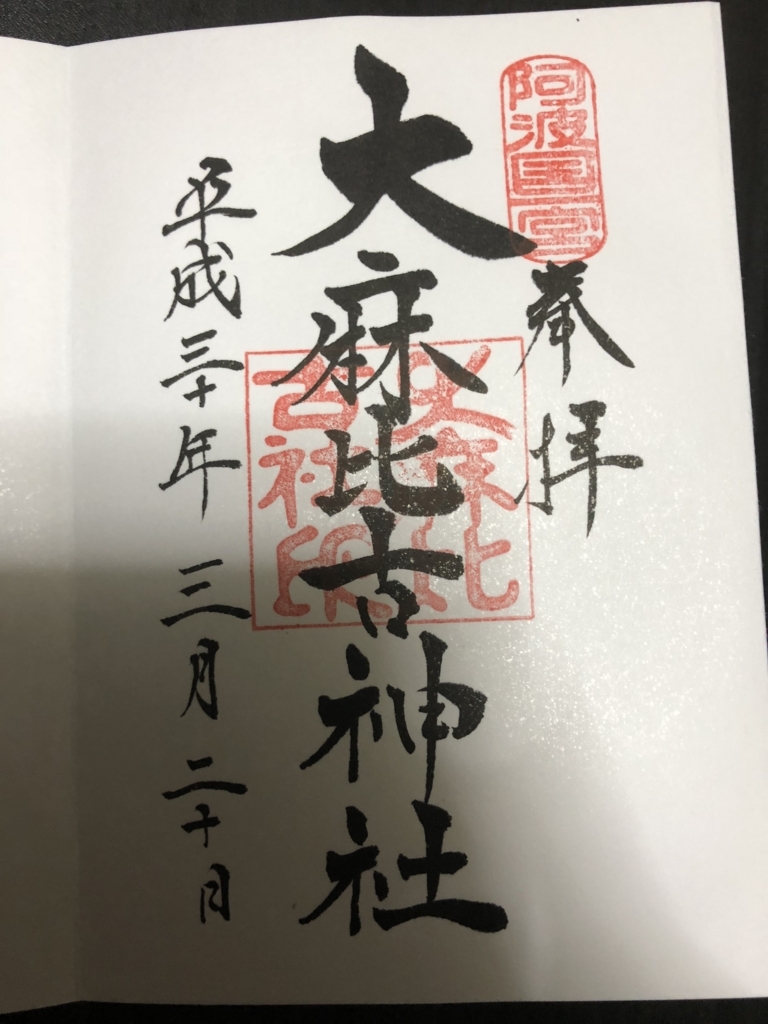 阿波国一宮
奉拝
大麻比古神社
大麻比
古社印
平成三十年 三月 二十日